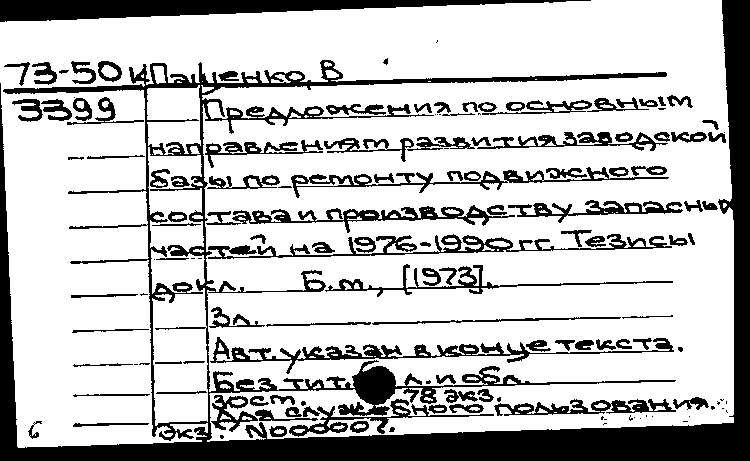 73-50к Пащенко, В
3399 Предложения по основным
направлениям развития заводской
базы по ремонту подвижного
состава и производству запасных
частей на 1976-1990 гг. Тезисы
докл. Б.м., [1973].
3л.
Авт. указан в конце текста.
Без тит. л. и обл.
зост. 78 экз.
Для служебного пользования.
6 Экз. N000007.